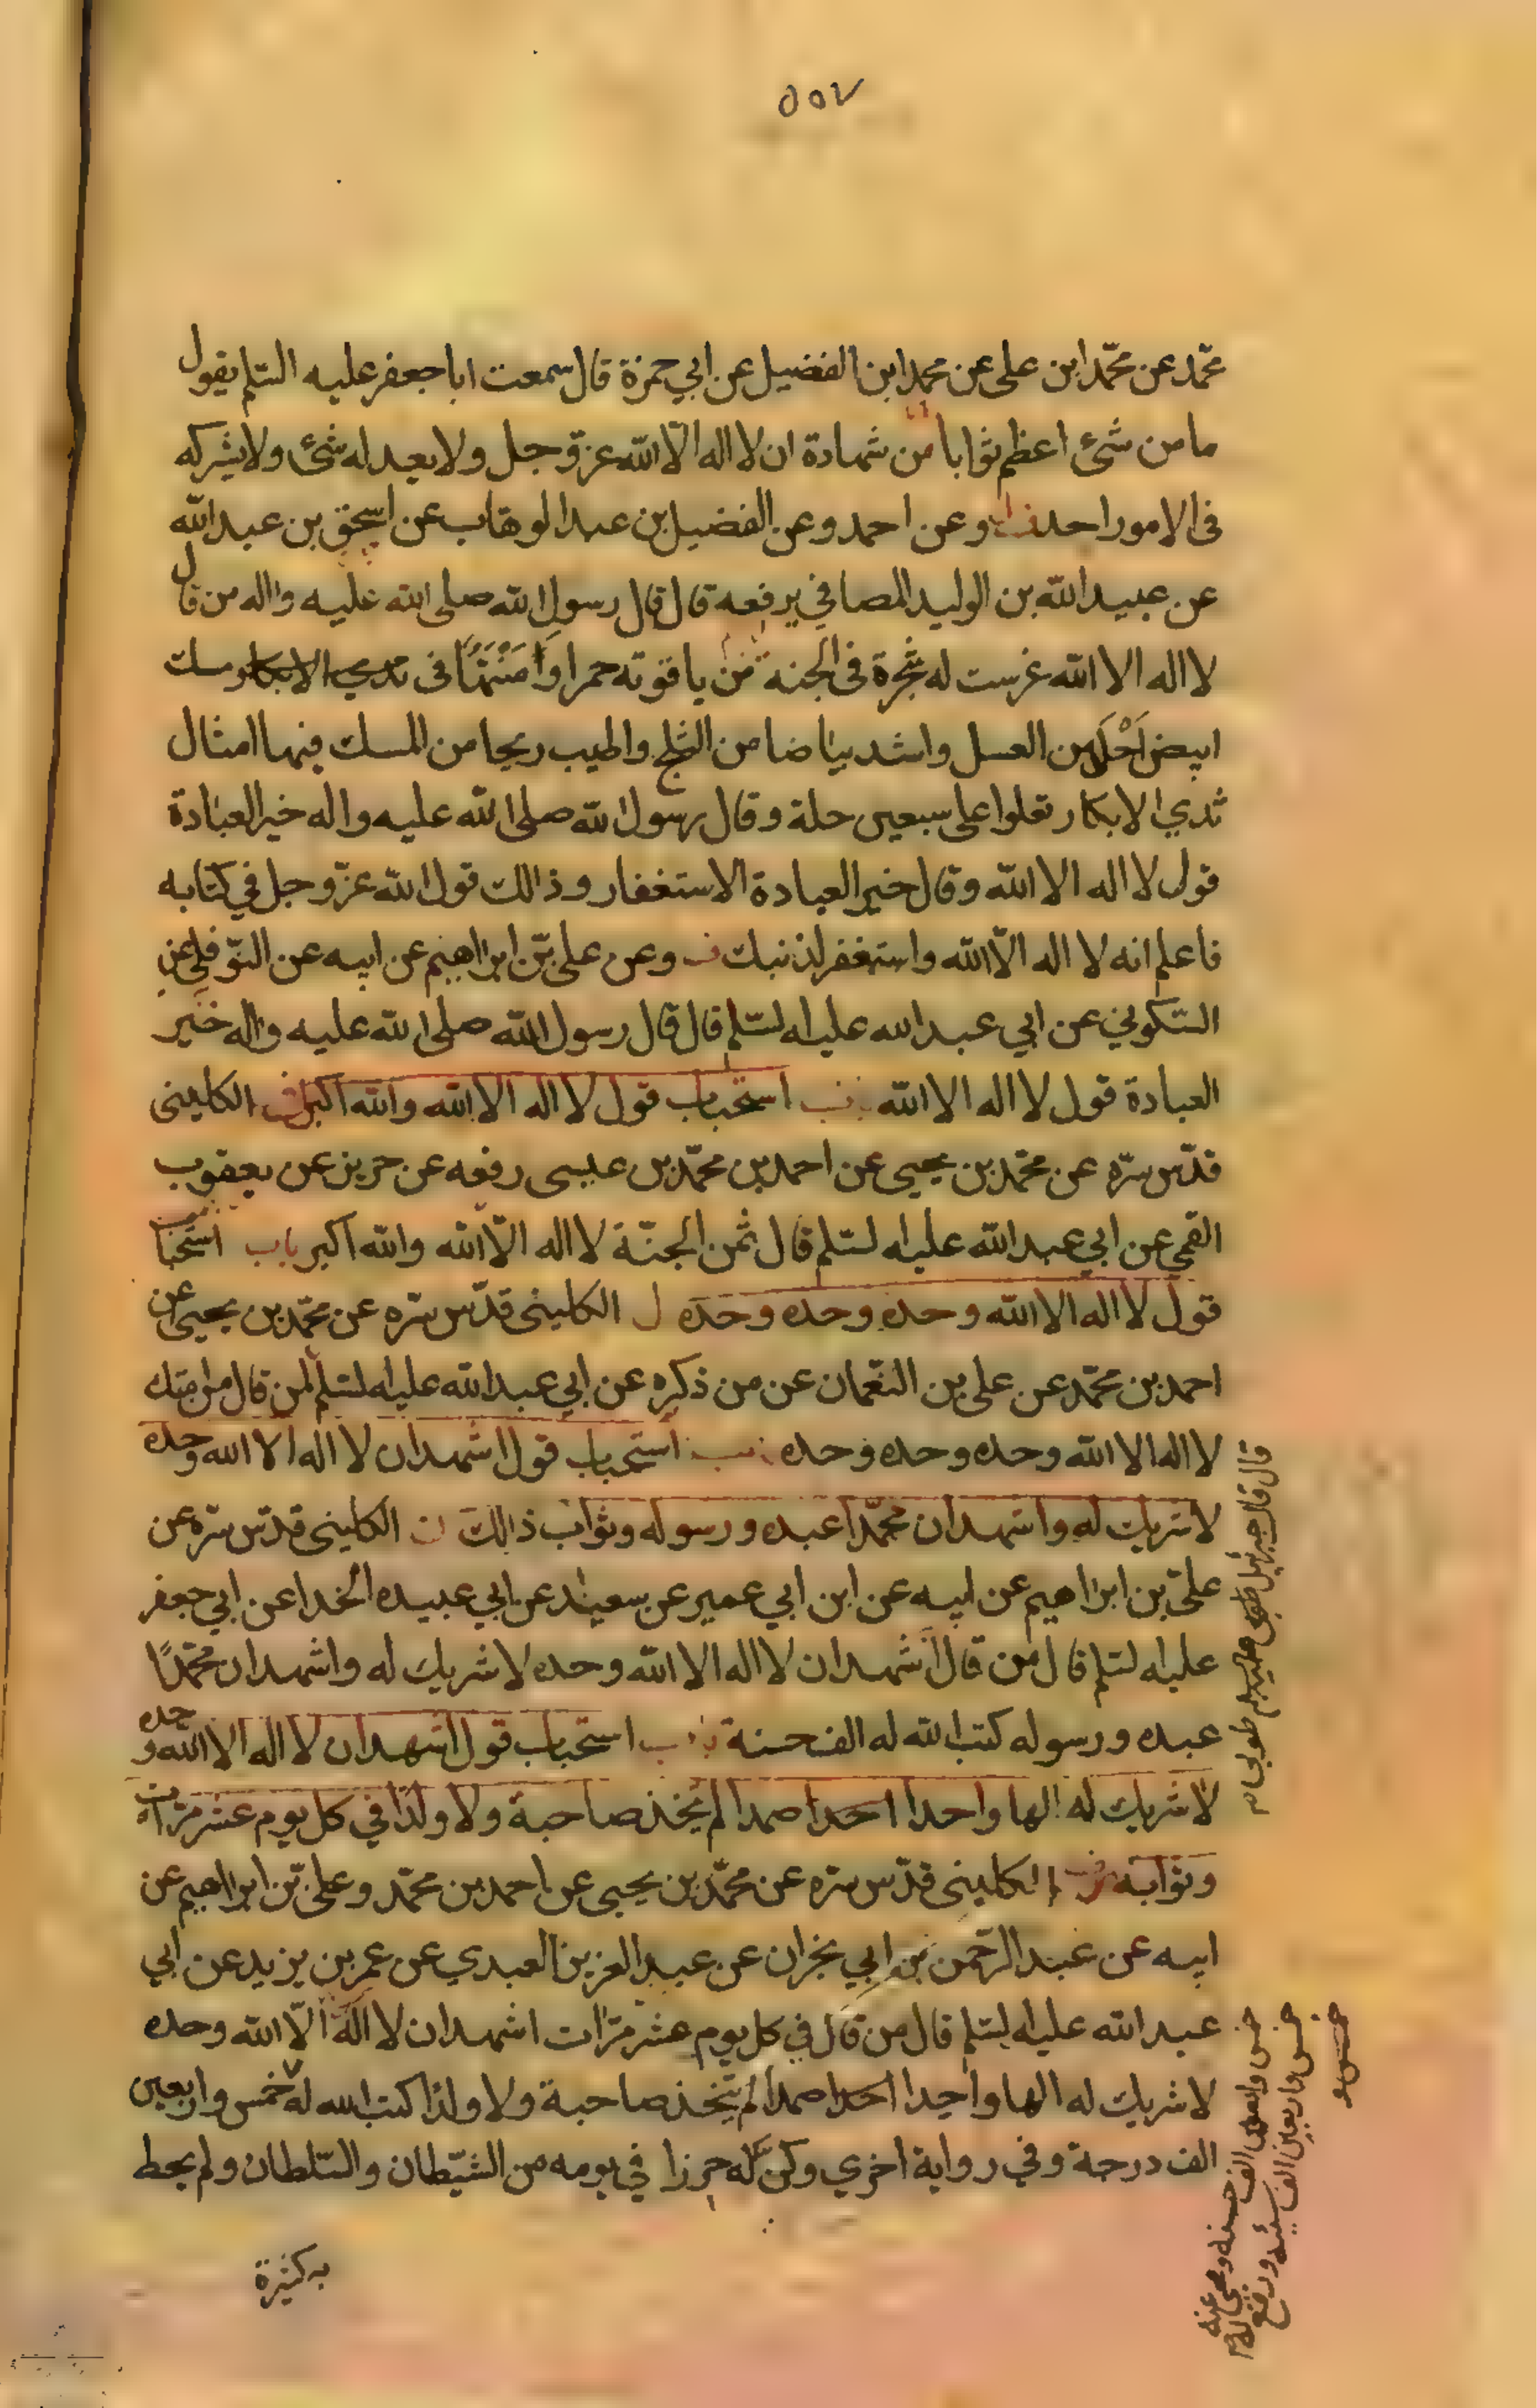 ٥٥٧
محمّد عن محمّد ابن على عن محمد ابن الفضيل عن ابي حمزة قال سمعت ابا جعفر عليه السّلم يقول
ما من شئ اعظم ثوابا من شهادة ان لا اله الّا الله عزّ وجل ولا يعدله شئ ولا يشركه
فى الامور احد وعن احمد وعن الفضيل بن عبد الوهاب عن اسحق بن عبد الله
عن عبيد الله بن الوليد المصافي يرفعه قال قال رسول الله صلى الله عليه واله من قال
لا اله الا الله غرست له شجرة فى الجنة من ياقوته حمرا منبتها فى
ابيض احلى من العسل واشد بياضا من الثلج واطيب ريحا من المسك فيها امثال
ثدي الابكار تعلوا على سبعين حلة وقال رسول الله صلى الله عليه واله خير العبادة
قول لا اله الا الله وقال خير العبادة الاستغفار وذالك قول الله عزّ وجل في كتابه
فاعلم انه لا اله الّا الله واستغفر لذنبك وعن على بن ابراهيم عن ابيه عن النّوفلي عن
السّكوني عن ابي عبد الله عليه السّلم قال قال رسول الله صلى الله عليه واله خير
العبادة قول لا اله الا الله باب استحباب قول لا اله الا الله والله اكبر الكلينى
قدّس سرّه عن محمّد بن يحيى عن احمد بن محمّد بن عيسى رفعه عن حريز عن يعقوب
القمي عن ابي عبد الله عليه السّلم قال ثمن الجنّة لا اله الّا الله والله اكبر باب استحباب
قول لا اله الا الله وحده وحده وحده الكلينى قدّس سّره عن محمّد بن يحيى عن
احمد بن محمّد عن على بن النعّمان عن من ذكره عن ابي عبد الله عليه السّلم لمن قال من امتك
لا اله الا الله وحده وحده وحده باب استحباب قول اشهد ان لا اله الا الله وحده
لا شريك له واشهد ان محمّدا عبده ورسوله وثواب ذالك الكلينى قدّس سّره عن
علىّ بن ابراهيم عن ابيه عن ابن ابي عمير عن سعيد عن ابي عبيده الخدا عن ابي جعفر
عليه السّلم قال من قال اشهد ان لا اله الا الله وحده لا شريك له واشهد ان محمّدًا
عبده ورسوله كتب الله له الف حسنة باب استحباب قول اشهد ان لا اله الا الله وحده
لا شريك له الها واحدا احدا صمدا لم يتخذ صاحبة ولا ولدًا في كل يوم عشر مرّات
وثوابه الكلينى قدّس سّره عن محمّد بن يحيى عن احمد بن محمّد وعلى بن ابراهيم عن
ابيه عن عبد الرّحمن بن ابي نجران عن عبد العزيز العبدي عن عمر بن يزيد عن ابي
عبد الله عليه السّلم قال من قال في كل يوم عشر مرّات اشهد ان لا اله الّا الله وحده
لا شريك له الها واحدا احدا صمدا لم يتّخذ صاحبة ولا ولدا كتب الله له خمس واربعين
الف درجة وفي رواية اخري وكنّ له حرزا في يومه من الشّيطان والسّلطان ولم يحط
به كثيرة
قال قال جبرئيل طوبى
خمس واربعين الف حسنه ومحى عنه
خمس واربعين الف سيئه ورفع له
خمس و